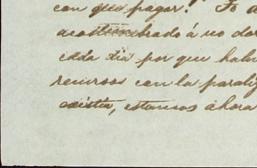 con que pagar! Yo a
acostumbrado á no dor
cada dia por que hab
recursos con la parali
existia, estamos ahora